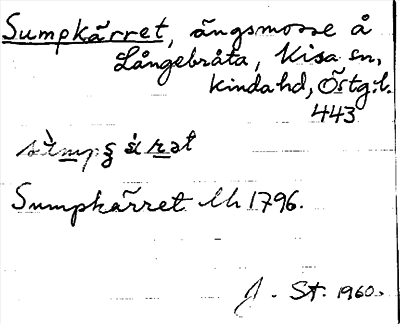 Sumpkärret, ängsmosse å
Långebråta, Kisa sn,
Kinda hd, Östg. l.
443
Sumpkärret Lh 1796.
J. St. 1960.